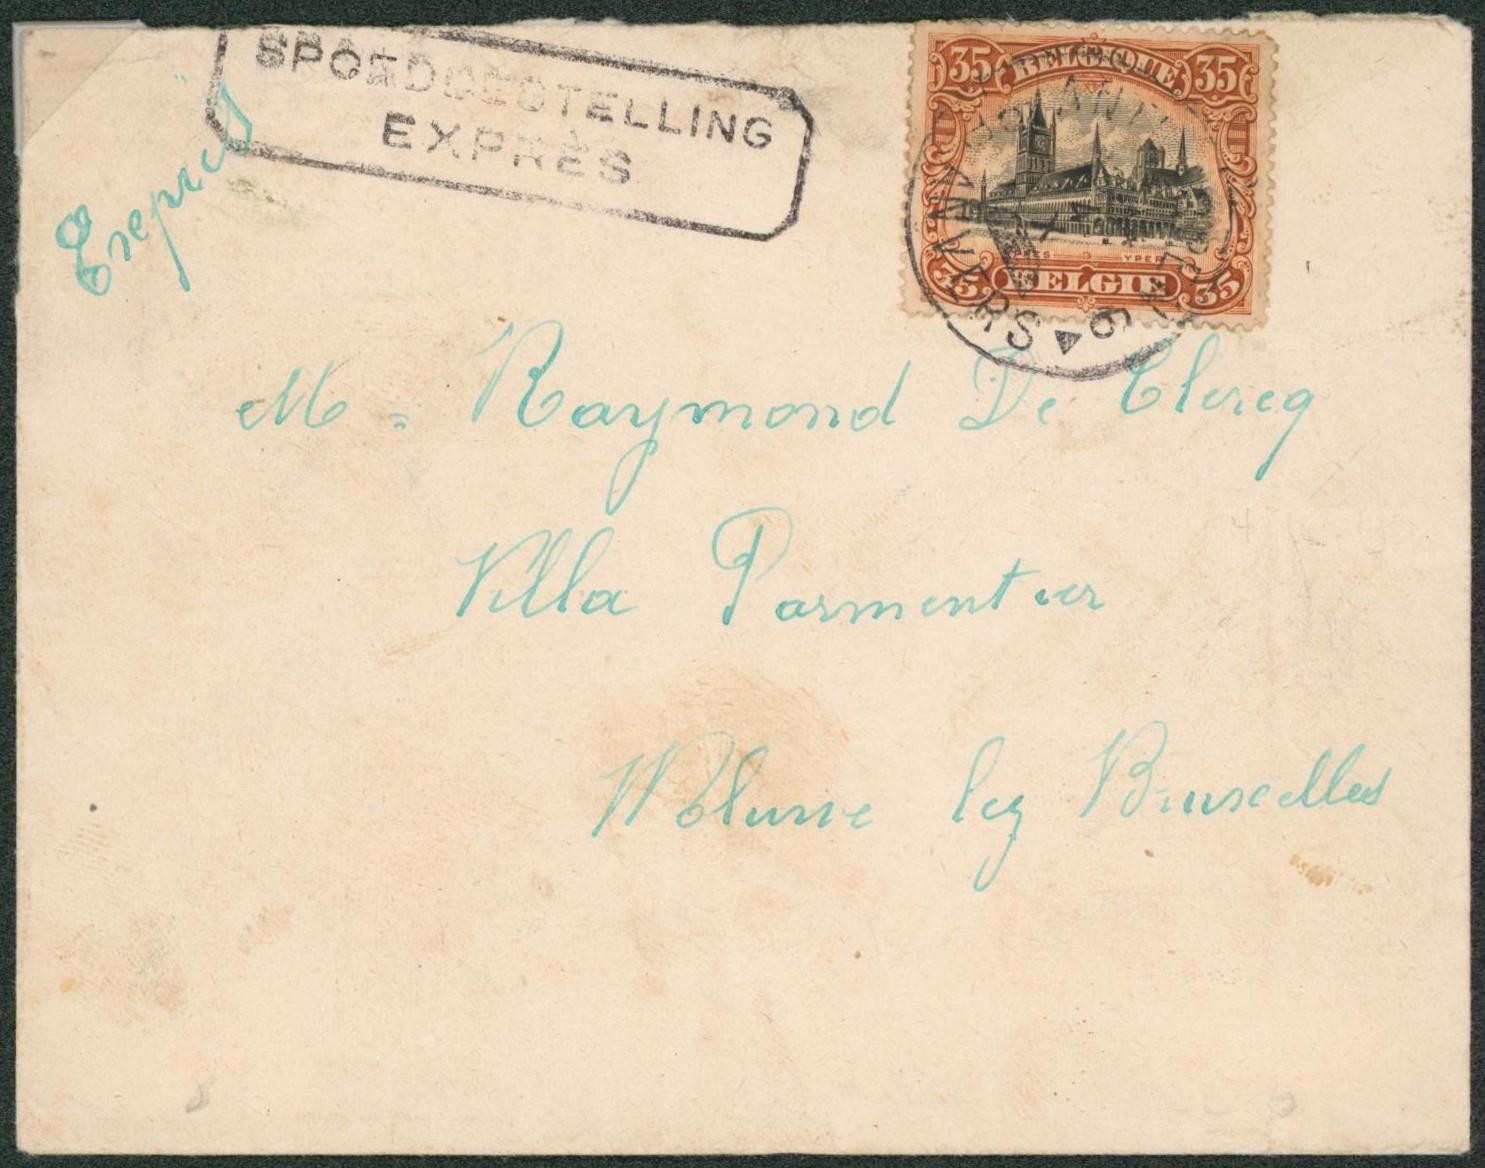 SPOEDBESTELLING
EXPRÈS
Exprès
35 BELGIQUE 35
YPRES YPER
35 BELGIË 35
ANTWERPEN 6
ANVERS
M = Raymond De Clercq
Villa Parmentier
Woluwe lez Bruxelles